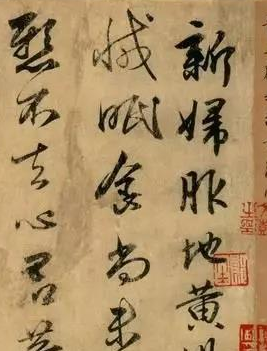 新婦服地黃
減眠食尚未
懸不去心君等